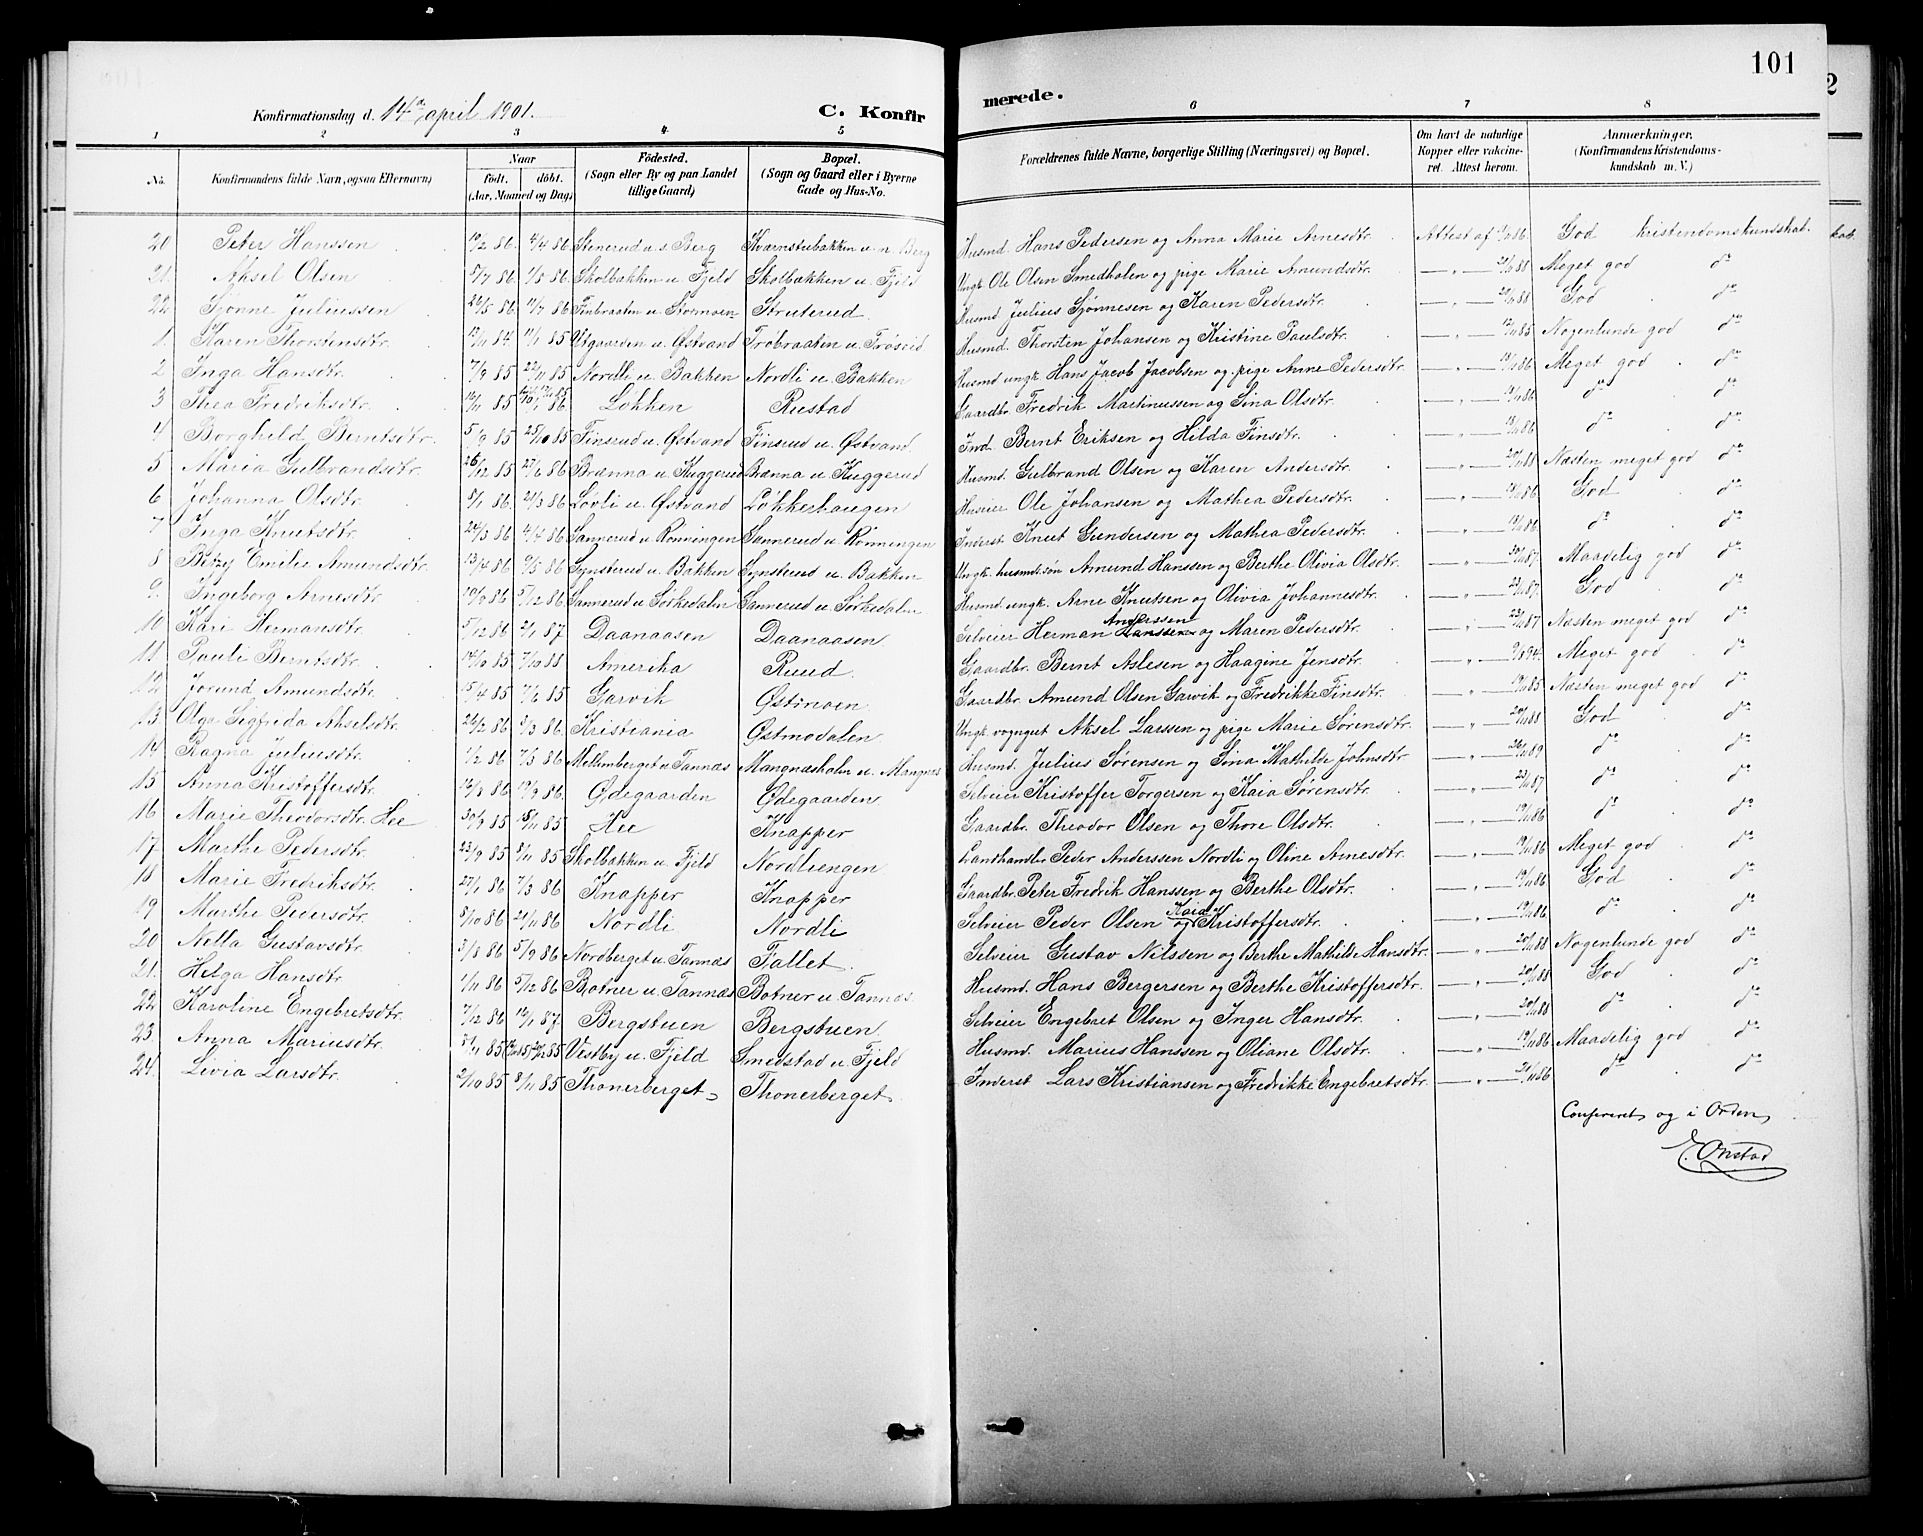 101
Konfirmationsdag d. 14de april 1901. C. Konfirmerede.
1 2 3 4 5 6 7 8
No. Konfirmandens fulde Navn, ogsaa Efternavn) Naar födt. döbt. (Aar, Maaned og Dag) Födested. (Sogn eller By og paa Landet tillige Gaard) Bopæl. (Sogn og Gaard eller i Byerne Gade og Hus-No. Forældrenes fulde Navne, borgerlige Stilling (Næringsvei) og Bopæl. Om havt de naturlige Kopper eller vakcineret. Attest herom. Anmærkninger, (Konfirmandens Kristendomskundskab m. V.)
20 Peter Hanssen 19/2 86. 4/4 86 Stenerud u. s. Berg Kvarnstubakken u. n. Berg Husmd. Hans Pedersen og Anna Marie Arnesdtr. Attest af God kristendomskundskab.
21. Aksel Olsen 5/7 86. 1/8 86 Skolbakken u. Fjeld Skolbakken u. Fjeld Ungk. Ole Olsen Smedholen og pige Marie Amundsdtr. — " — Meget god do
22 Sjönne Juliussen 26/5 86 11/7 86 Finbraaten u. Stormoen Struterud. Husmd Julius Sjönnesen og Karen Pedersdtr. — " — God do
1. Karen Thorstensdtr. 13/11 84. 11/1 85 Utgaarden u. Østvand Fröbraaten u. Fröseid Husmd. Thorsten Johansen og Kristine Paulsdtr. — " — Nogenlunde god do
2 Inga Hansdtr. 7/9 85 22/11 85 Nordli u. Bakken Nordli u. Bakken Husmd ungk. Hans Jacob Jacobsen og pige Anne Pedersdtr. — " — Meget god do
3 Thea Fredriksdtr. 16/11 85 Løkken Rustad Gaardbr. Fredrik Martinussen og Sina Olsdtr. — " — do do
4 Borghild Berntsdtr. 5/9 85 25/10 85 Finsrud u. Østvand Finsrud u. Østvand Ind. Bernt Eriksen og Hilda Finsdtr. — " — do do
5 Maria Gulbrandsdtr. 26/12 85 27/6 86 Brænna u. Kuggerud Brænna u. Kuggerud Husmd. Gulbrand Olsen og Karen Andersdtr. — " — Næsten meget god do
6 Johanna Olsdtr. 5/1 86. 21/3 86 Lövli u. Østvand Lökkehaugen Huseier Ole Johansen og Mathea Pedersdtr. — " — God do
7 Inga Knutsdtr. 24/3 86 4/4 86 Sannerud u. Rönningen Sannerud u. Rönningen Inderst Knut Gundersen og Mathea Pedersdtr. — " — do do
8 Betzy Emilie Amundsdtr. 13/4 86 9/5 86 Synsterud u. Bakken Synsterud u. Bakken Ungk. husmds.søn Amund Hanssen og Berthe Olivia Olsdtr. — " — Maadelig god do
9. Ingeborg Arnesdtr. 10/9 86 5/12 86 Sannerud u. Sörkedalen Sannerud u. Sörkedalen Husmd ungk. Arne Knutsen og Olivia Johannesdtr. — " — God do
10 Kari Hermansdtr. 5/12 86 2/1 87 Daanaasen Daanaasen Selveier Herman Hanssen Anderssen og Maren Pedersdtr. — " — Næsten meget god do
11 Pauli Berntsdtr. 14/10 85 7/10 88 Amerika Ruud. Gaardbr. Bernt Aslesen og Haagine Jensdtr. — " — Meget god do
12 Jorund Amundsdtr. 15/4 85 7/6 85 Garvik Østmoen Gaardbr. Amund Olsen Garvik og Fredrikke Finsdtr. — " — Næsten meget god do
13. Olga Sigfrida Akselsdtr. 26/2 86 3/3 86. Kristiania Østmodalen Ungk. vogngut Aksel Larssen og pige Marie Sørensdtr. — " — God do
14 Ragna Juliusdtr. 1/2 86 7/3 86 Mellemberget u. Tannæs Mangnæsholm u. Mangnæs Husmd. Julius Sørensen og Sina Mathilde Johnsdtr. — " — do do
15 Anna Kristoffersdtr. 14/8 86 19/9 86. Ødegaarden Ødegaarden Selveier Kristoffer Torgersen og Kaia Sørensdtr. — " — do do
16 Marie Theodorsdtr. Hee 30/9 85 15/11 85 Hee Knapper Gaardbr. Theodor Olsen og Thore Olsdtr. — " — do do
17 Marthe Pedersdtr. 23/9 85 8/11 85 Skolbakken u. Fjeld Nordliengen Landhandler Peder Anderssen Nordli og Oline Arnesdtr. — " — Meget god do
18 Marie Fredriksdtr. 27/1 86 7/3 86 Knapper Knapper Gaardbr. Peter Fredrik Hanssen og Berthe Olsdtr. — " — God do
19 Marthe Pedersdtr. 8/10 86 21/11 86 Nordli Nordli Selveier Peder Olsen og Kaia Kristoffersdtr. — " — do do
20 Nella Gustavsdtr. 3/8 86 5/9 86 Nordberget u. Tannæs Fallet. Selveier Gustav Nilssen og Berthe Mathilde Hansdtr. — " — Nogenlunde god do
21. Helga Hansdtr. 1/11 86 5/12 86 Botner u. Tannæs Botner u. Tannæs Husmd. Hans Bergersen og Berthe Kristoffersdtr. — " — God do
22. Karoline Engebretsdtr. 7/12 86 16/1 87. Bergstuen Bergstuen. Selveier Engebret Olsen og Inger Hansdtr. — " — do do
23. Anna Mariusdtr. 5/11 85 Vestby u. Fjeld Smedstad u. Fjeld Husmd. Marius Hanssen og Oliane Olsdtr. — " — Maadelig god do
24. Livia Larsdtr. 2/10 85 8/11 85 Thonerberget Thonerberget Inderst Lars Kristiansen og Fredrikke Engebretsdtr. — " — do do
Confereret og i Orden
E. Onstad